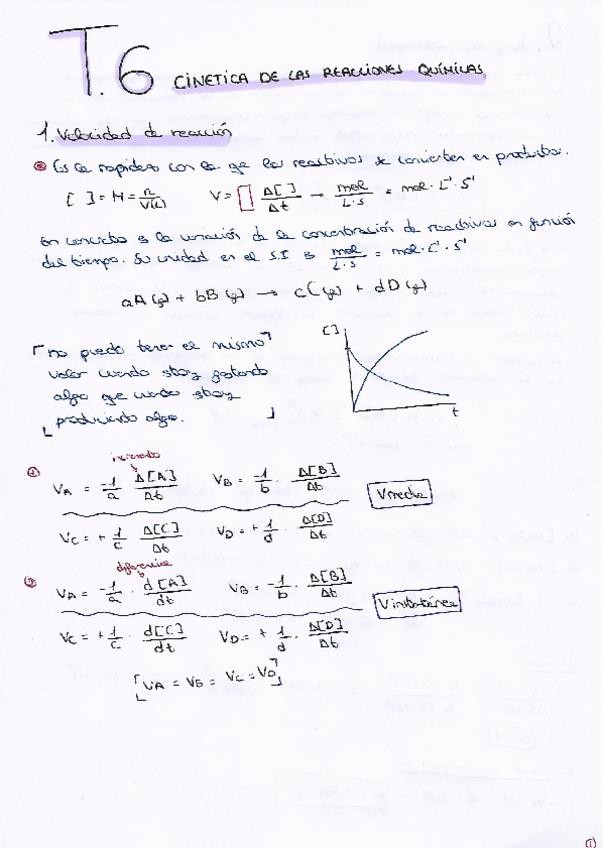 T.6 CINETICA DE LAS REACCIONES QUÍMICAS.
1. Velocidad de reacción
Es la rapidez con la qe los reactivos se convierten en productos.
[ ] = M = n/V(L)    V = [] Δ[ ]/Δt → mol/L·s = mol·L⁻¹·s⁻¹
En concreto es la variación de la concentración de reactivos en función
del tiempo. Su unidad en el S.I es mol/L·s = mol·L⁻¹·s⁻¹
aA (g) + bB (g) → cC (g) + dD (g)
[ ]
no puedo tener el mismo
valor cuando stoy gastando
algo qe cuando stoy
produciendo algo.
t
incremento
① V_A = -1/a Δ[A]/Δt    V_B = -1/b · Δ[B]/Δt
Vmedia
V_C = +1/c · Δ[C]/Δt    V_D = +1/d · Δ[D]/Δt
diferencia
② V_A = -1/a · d[A]/dt    V_B = -1/b · Δ[B]/Δt
Vinstatánea
V_C = +1/c · d[C]/dt    V_D = +1/d · Δ[D]/Δt
V_A = V_B = V_C = V_D
①